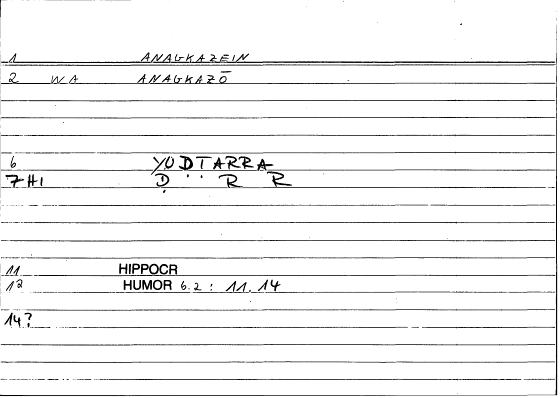 1 ANAGKAZEIN
2 WA ANAGKAZŌ
6 YUḌTARRA
7 HI Ḍ . . R R
11 HIPPOCR
12 HUMOR 6.2 : 11.14
14?